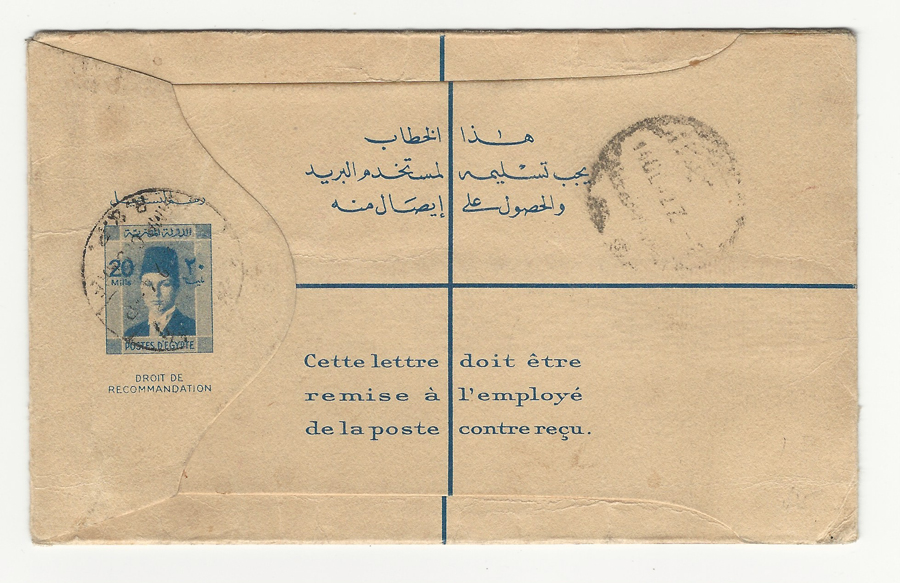 هذا الخطاب
يجب تسليمه لمستخدمو البريد
والحصول على إيصال منه
الدولة المصرية
20 ٢٠
Mills مليما
POSTES D'EGYPTE
DROIT DE
RECOMMANDATION
Cette lettre doit être
remise à l'employé
de la poste contre reçu.